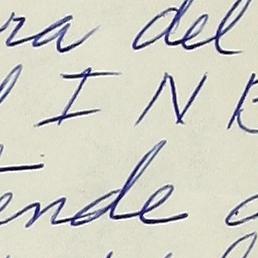 ra del
I N B
ende